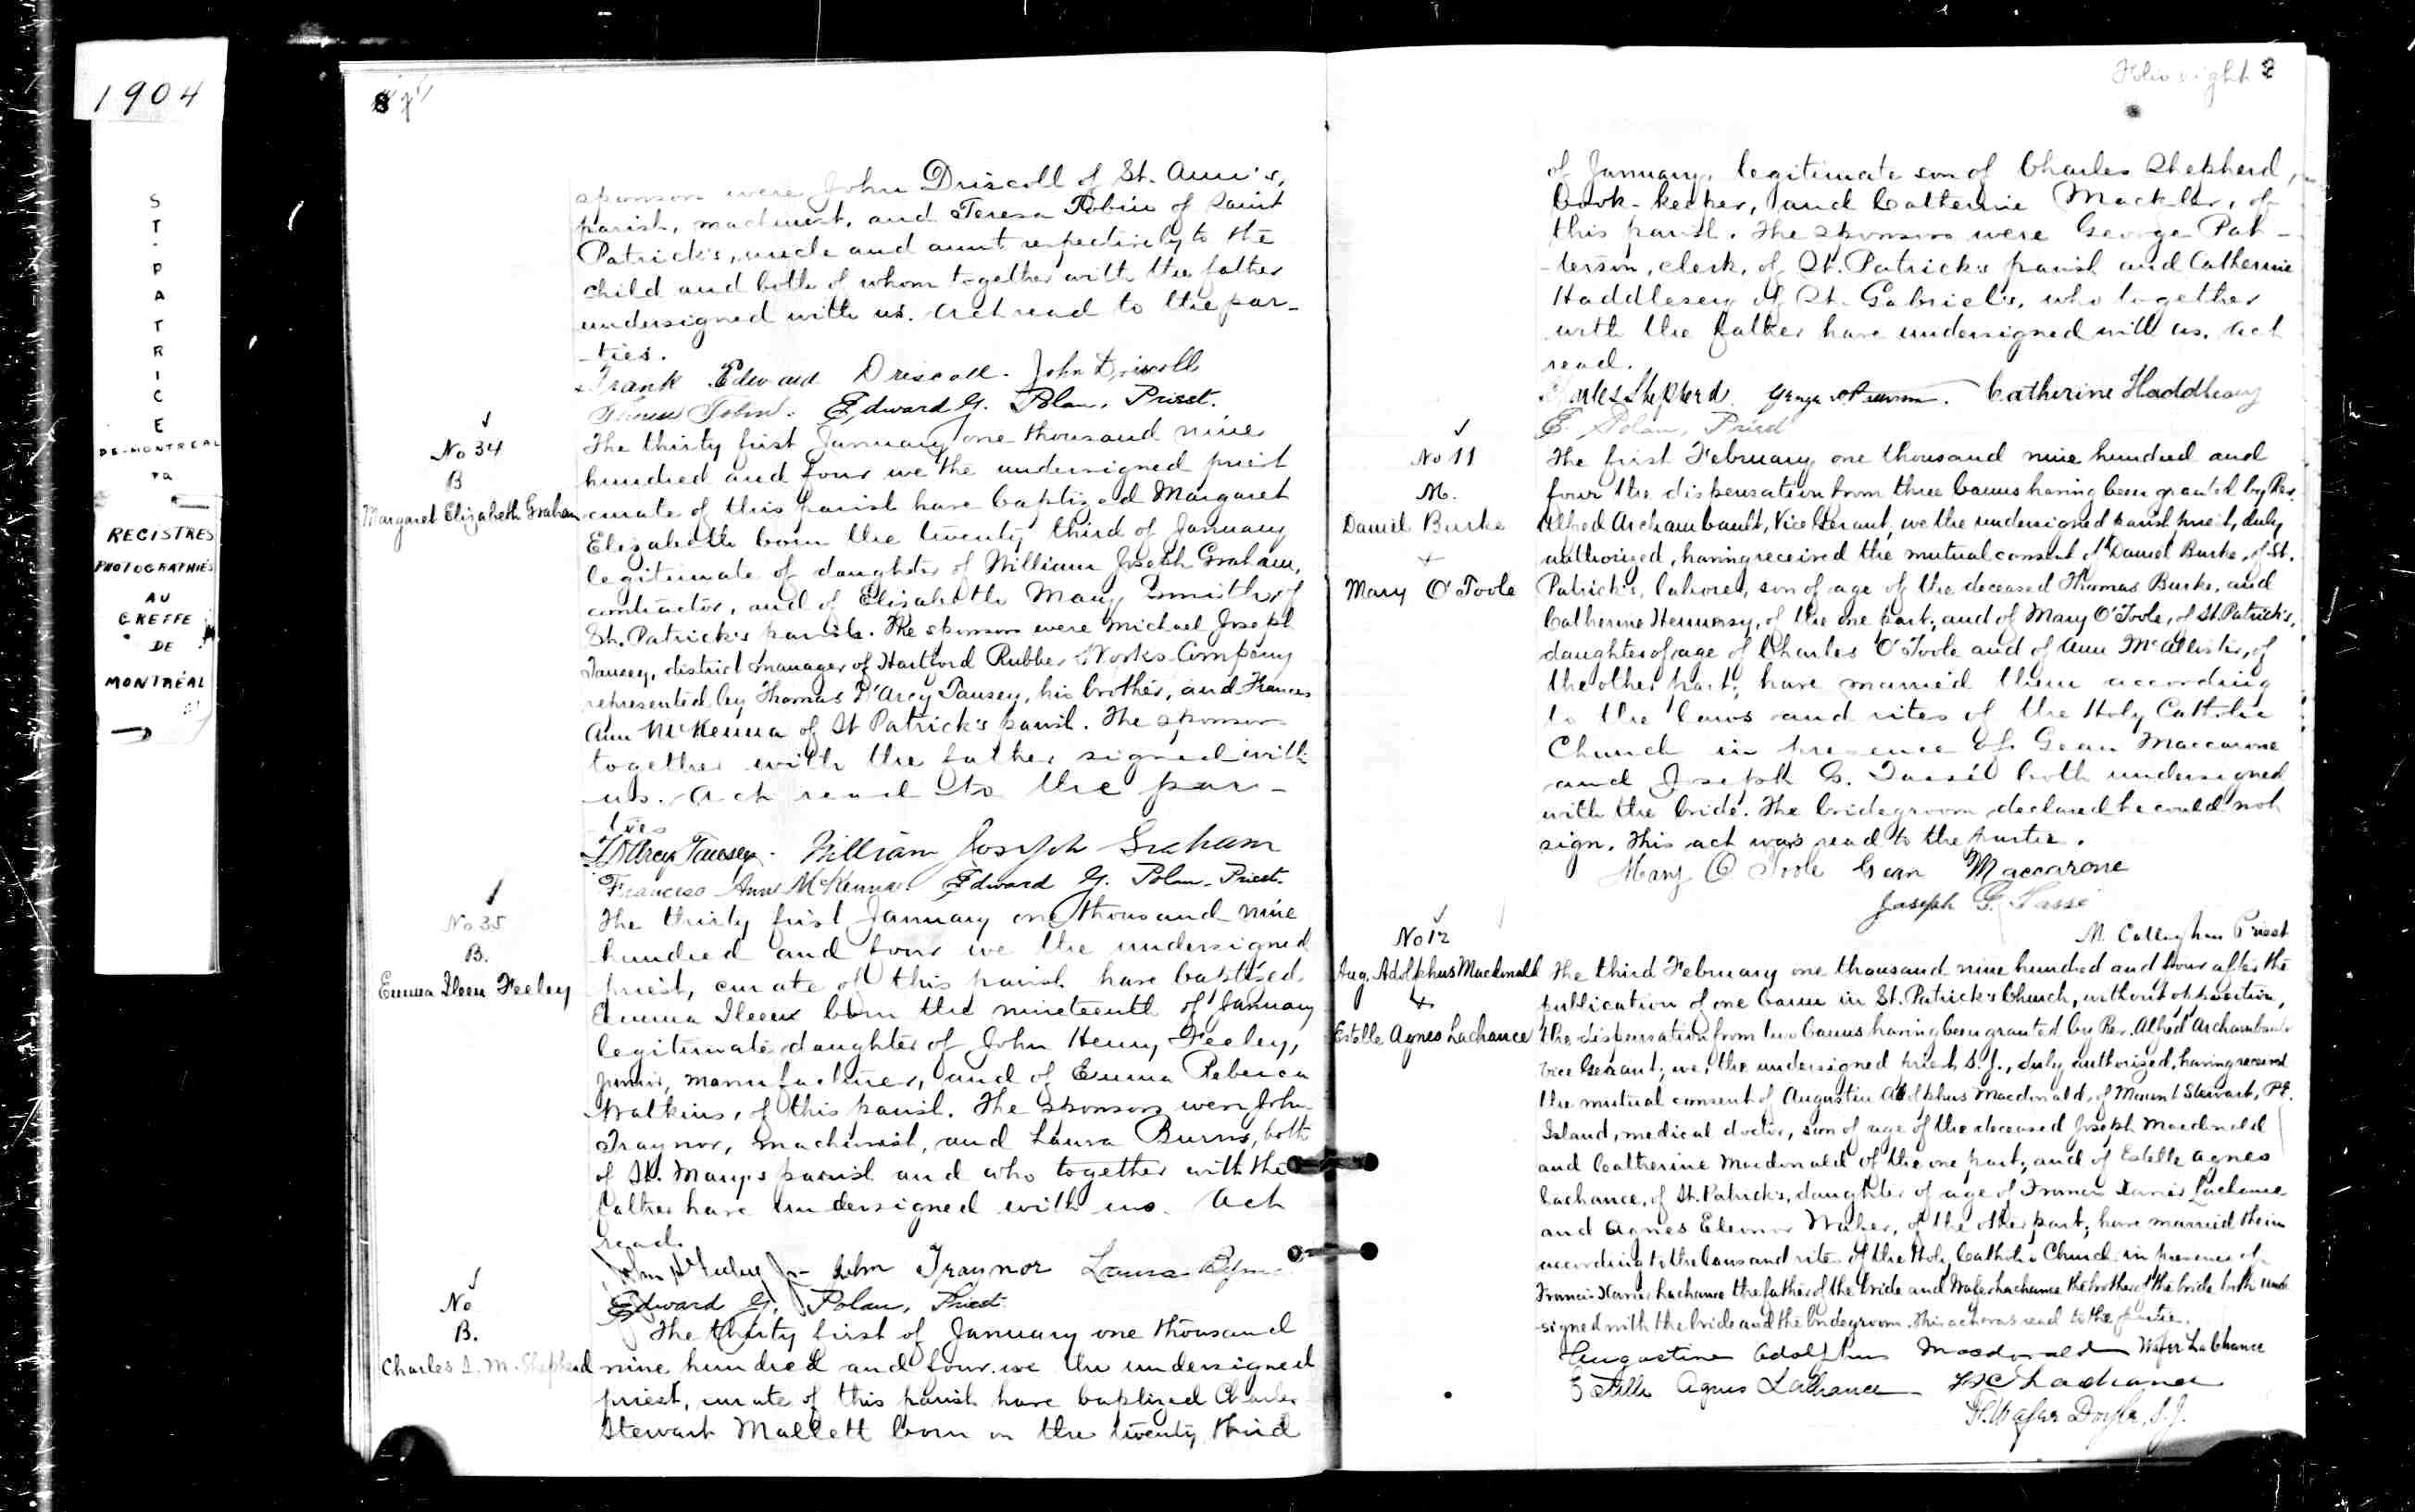 1904
ST. PATRICE
DE-MONTREAL
PQ
REGISTRES
PHOTOGRAPHIÉS
AU
GREFFE
DE
MONTRÉAL
8
sponsors were John Driscoll of St. Ann's,
parish, machinist, and Teresa Tobin of Saint
Patrick's, uncle and aunt respectively to the
child and both of whom together with the father
undersigned with us. Act read to the par-
-ties.
Frank Edward Driscoll. John Driscoll
Edward G. Polan, Priest.
No 34
B
Margaret Elizabeth Graham
The thirty first January one thousand nine
hundred and four we the undersigned priest
curate of this parish have baptized Margaret
Elizabeth born the twenty third of January
legitimate of daughter of William Joseph Graham,
contractor, and of Elizabeth Mary Smith of
St. Patrick's parish. The sponsors were Michael Joseph
Tansey, district manager of Hartford Rubber Works Company
represented by Thomas D'Arcy Tansey, his brother, and Frances
Ann McKenna of St Patrick's parish. The sponsors
together with the father signed with
us. Act read to the par-
-ties
T D'Arcy Tansey. William Joseph Graham
Frances Ann McKenna. Edward G. Polan, Priest.
No 35
B.
Emma Ileen Feeley
The thirty first January one thousand nine
hundred and four we the undersigned
priest, curate of this parish have baptised
Emma Ileen born the nineteenth of January
legitimate daughter of John Henry Feeley,
junior, manufacturer, and of Emma Rebecca
Watkins, of this parish. The sponsors were John
Traynor, machinist, and Laura Burns, both
of St. Mary's parish and who together with the
father have undersigned with us. Act
read.
John H Feeley Jr John Traynor Laura
Edward G. Polan, Priest.
No
B.
Charles S. M. Shepherd
The thirty first of January one thousand
nine hundred and four we the undersigned
priest, curate of this parish have baptized Charles
Stewart Mallett born on the twenty third
Folio eight 8
of January, legitimate son of Charles Shepherd,
book-keeper, and Catherine Mackler, of
this parish. The sponsors were George Pat-
-terson, clerk, of St. Patrick's parish and Catherine
Haddlesey of St. Gabriel's, who together
with the father have undersigned with us. Act
read.
Charles Shepherd George Patterson. Catherine Haddlesey
E. Polan, Priest
No 11
M.
Daniel Burke
+
Mary O'Toole
The first February one thousand nine hundred and
four the dispensation from three banns having been granted by Rev.
Alfred Archambault, Vice Gerant, we the undersigned parish priest, duly
authorized, having received the mutual consent of Daniel Burke, of St.
Patrick's, laborer, son of age of the deceased Thomas Burke, and
Catherine Hennessy, of the one part; and of Mary O'Toole, of St. Patrick's,
daughter of age of Charles O'Toole and of Ann McAllister, of
the other part; have married them according
to the laws and rites of the Holy Catholic
Church in presence of Gean Maccarone
and Joseph G. Tassé both undersigned
with the bride. The bridegroom declared he could not
sign. This act was read to the parties.
Mary O Toole Gean Maccarone
Joseph G. Tassé
M. Callaghan Priest
No 12
Aug. Adolphus Macdonald
+
Estelle Agnes Lachance
The third February one thousand nine hundred and four after the
publication of one bann in St. Patrick's Church, without opposition,
the dispensation from two banns having been granted by Rev. Alfred Archambault
Vice Gerant; we, the undersigned priest S.J., duly authorized, having received
the mutual consent of Augustin Adolphus Macdonald, of Mount Stewart, P.E.
Island, medical doctor, son of age of the deceased Joseph Macdonald
and Catherine Macdonald of the one part; and of Estelle Agnes
Lachance, of St. Patrick's, daughter of age of Francis Xavier Lachance
and Agnes Eleonor Wafer, of the other part; have married them
according to the laws and rites of the Holy Catholic Church in presence of
Francis Xavier Lachance the father of the bride and Wafer Lachance the brother of the bride both under
-signed with the bride and the bridegroom. This act was read to the parties.
Augustine Adolphus Macdonald Wafer LaChance
Estelle Agnes LaChance F X Lachance
H. Wafer Doyle, S.J.